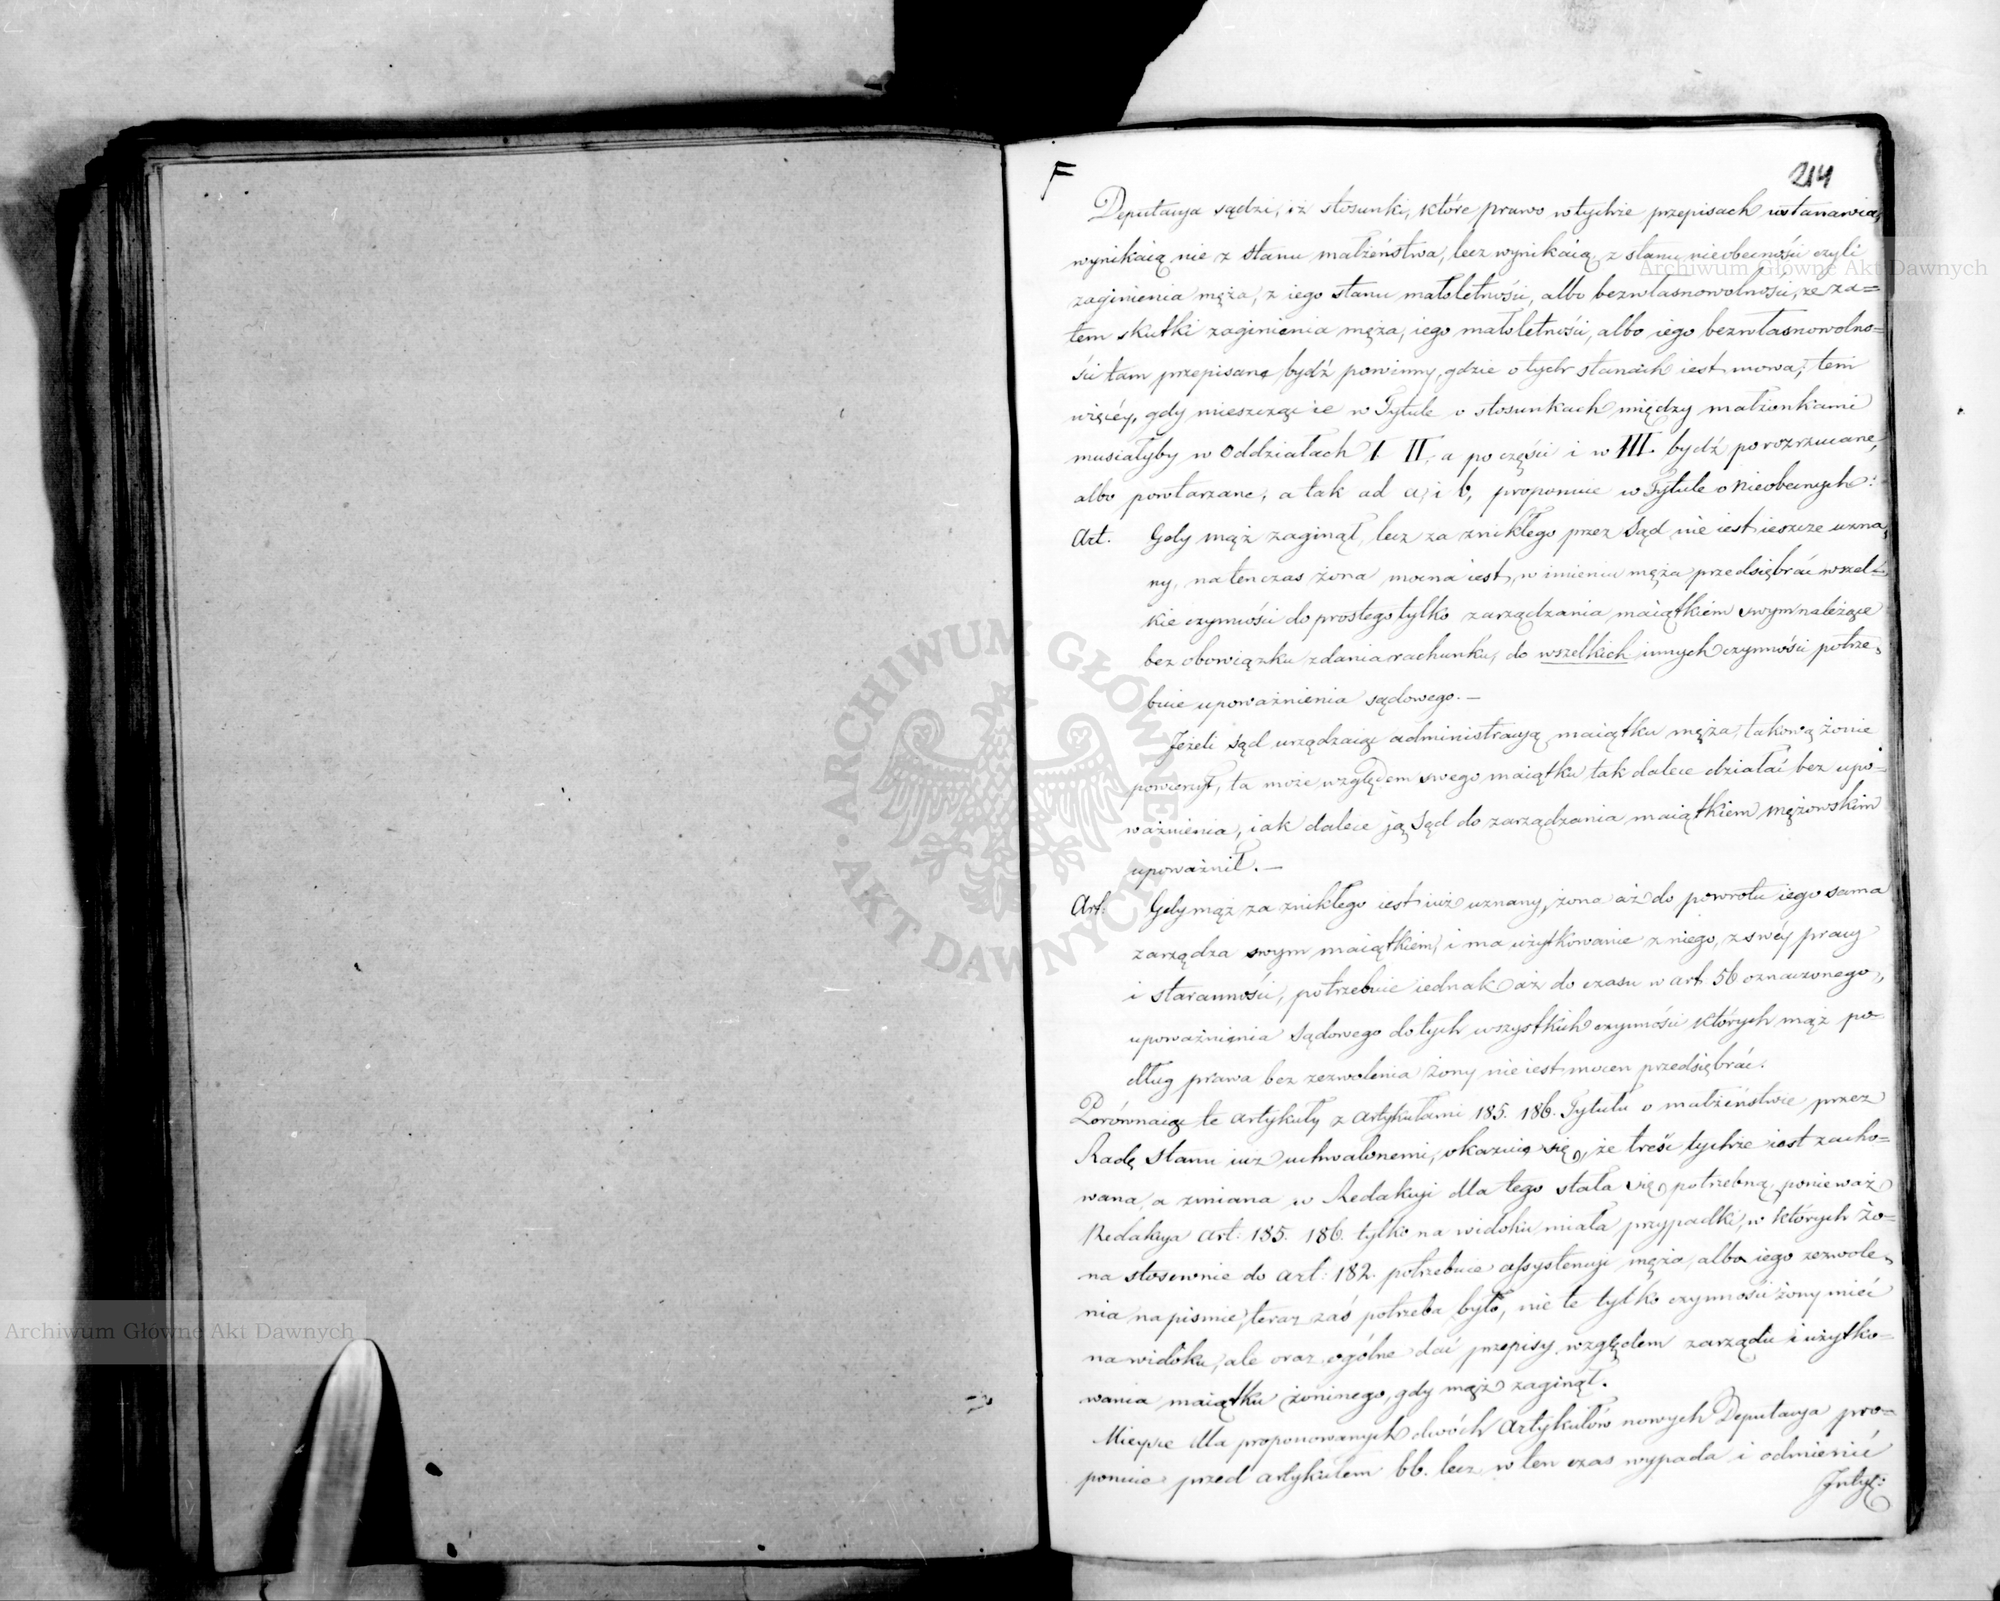 F
214
Deputacya sądzi, iż stosunki, które prawo w tychże przepisach ustanawia,
wynikaią nie z stanu małżeństwa, lecz wynikaią z stanu nieobecności czyli
zaginienia męża, z iego stanu małoletności, albo bezwłasnowolności, że za=
tem skutki zaginienia męża, iego małoletności, albo iego bezwłasnowolno=
ści tam przepisane bydź powinny, gdzie o tych stanach iest mowa; tem
więcéy, gdy mieszcząc ie w Tytule o stosunkach między małżonkami
musiałyby w Oddziałach I. II. a po części i w III. bydź porozrzucane,
albo powtarzane; a tak ad a, i b, proponuie w Tytule o Nieobecnych:
Art. Gdy mąż zaginął, lecz za znikłego przez Sąd nie iest ieszcze uzna,
ny, natenczas żona mocna iest, w imieniu męża przedsiębrać wszel=
kie czynności do prostego tylko zarządzania maiątkiem swym należące
bez obowiązku zdania rachunku, do wszelkich innych czynności potrze,
buie upoważnienia sądowego. —
Jeżeli Sąd urządzaiąc administracyą maiątku męża, takową żonie
powierzył, ta może względem swego maiątku tak dalece działać bez upo=
ważnienia, iak dalece ją Sąd do zarządzania maiątkiem mężowskim
upoważnił. —
Art: Gdy mąż za znikłego iest iuż uznany, żona aż do powrotu iego sama
zarządza swym maiątkiem, i ma użytkowanie z niego, z swéy pracy
i staranności, potrzebuie iednak aż do czasu w art 56 oznaczonego,
upoważnienia Sądowego do tych wszystkich czynności których mąż po=
dług prawa bez zezwolenia żony nie iest mocen przedsiębrać.
Porównaiąc te artykuły z artykułami 185. 186. Tytułu o małżeństwie przez
Radę Stanu iuż uchwalonemi, okazuie się, że treść tychże iest zacho=
wana, a zmiana w Redakcyi dla tego stała się potrzebną, ponieważ
Redakcya art: 185. 186. tylko na widoku miała przypadki, w których żo=
na stosownie do art: 182. potrzebuie assystencyi męża, albo iego zezwole,
nia na piśmie, teraz zaś potrzeba było, nie te tylko czynności żony mieć
na widoku, ale oraz ogólne dać przepisy względem zarządu i użytko=
wania maiątku żoninego, gdy mąż zaginął.
Mieysce dla proponowanych dwóch Artykułów nowych Deputacya pro=
ponuie przed artykułem 66. lecz w ten czas wypada i odmienić
Intyt:
Archiwum Główne Akt Dawnych
Archiwum Główne Akt Dawnych
ARCHIWUM GŁÓWNE AKT DAWNYCH